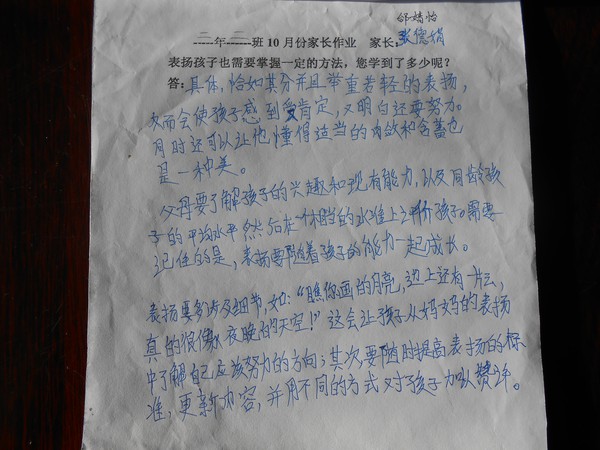 邹婧怡
二年二班10月份家长作业 家长:张德娟
表扬孩子也需要掌握一定的方法，您学到了多少呢?
答:具体，恰如其分并且举重若轻的表扬，
反而会使孩子感到受肯定，又明白还要努力。
同时还可以让他懂得适当的内敛和含蓄也
是一种美。
父母要了解孩子的兴趣和现有能力，以及同龄孩
子的平均水平，然后在一个恰当的水准上评价孩子。需要
记住的是，表扬要随着孩子的能力一起成长。
表扬要多涉及细节，如:“瞧你画的月亮，边上还有一片云，
真的很像夜晚的天空!”这会让孩子从妈妈的表扬
中了解自己应该努力的方向;其次，要随时提高表扬的标
准，更新内容，并用不同的方式对孩子加以赞许。